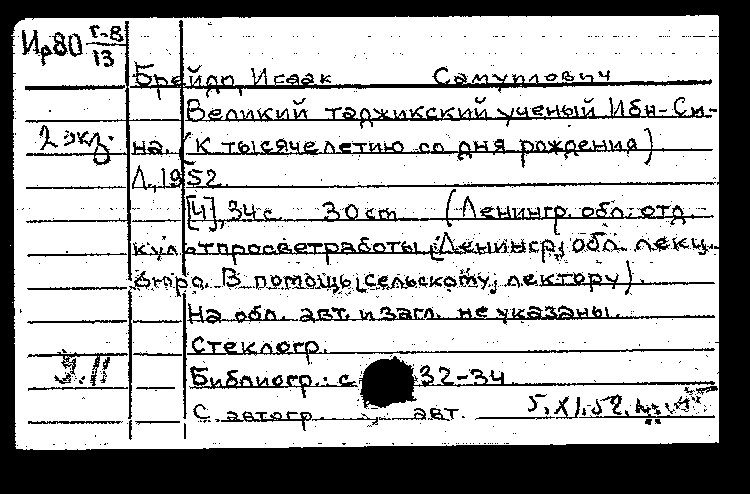 Ир80 г-8/13
Брейдо, Исаак Самуилович
Великий таджикский ученый Ибн-Си-
2 экз. на. (К тысячелетию со дня рождения)
Л., 1952.
[4], 34 с. 30 cm (Ленингр. обл. отд.
культпросветработы, Ленингр. обл. лекц.
бюро. В помощь сельскому лектору).
На обл. авт. и загл. не указаны.
Стеклогр.
Библиогр.: с 32-34
С автогр. авт. 5.XI.52.